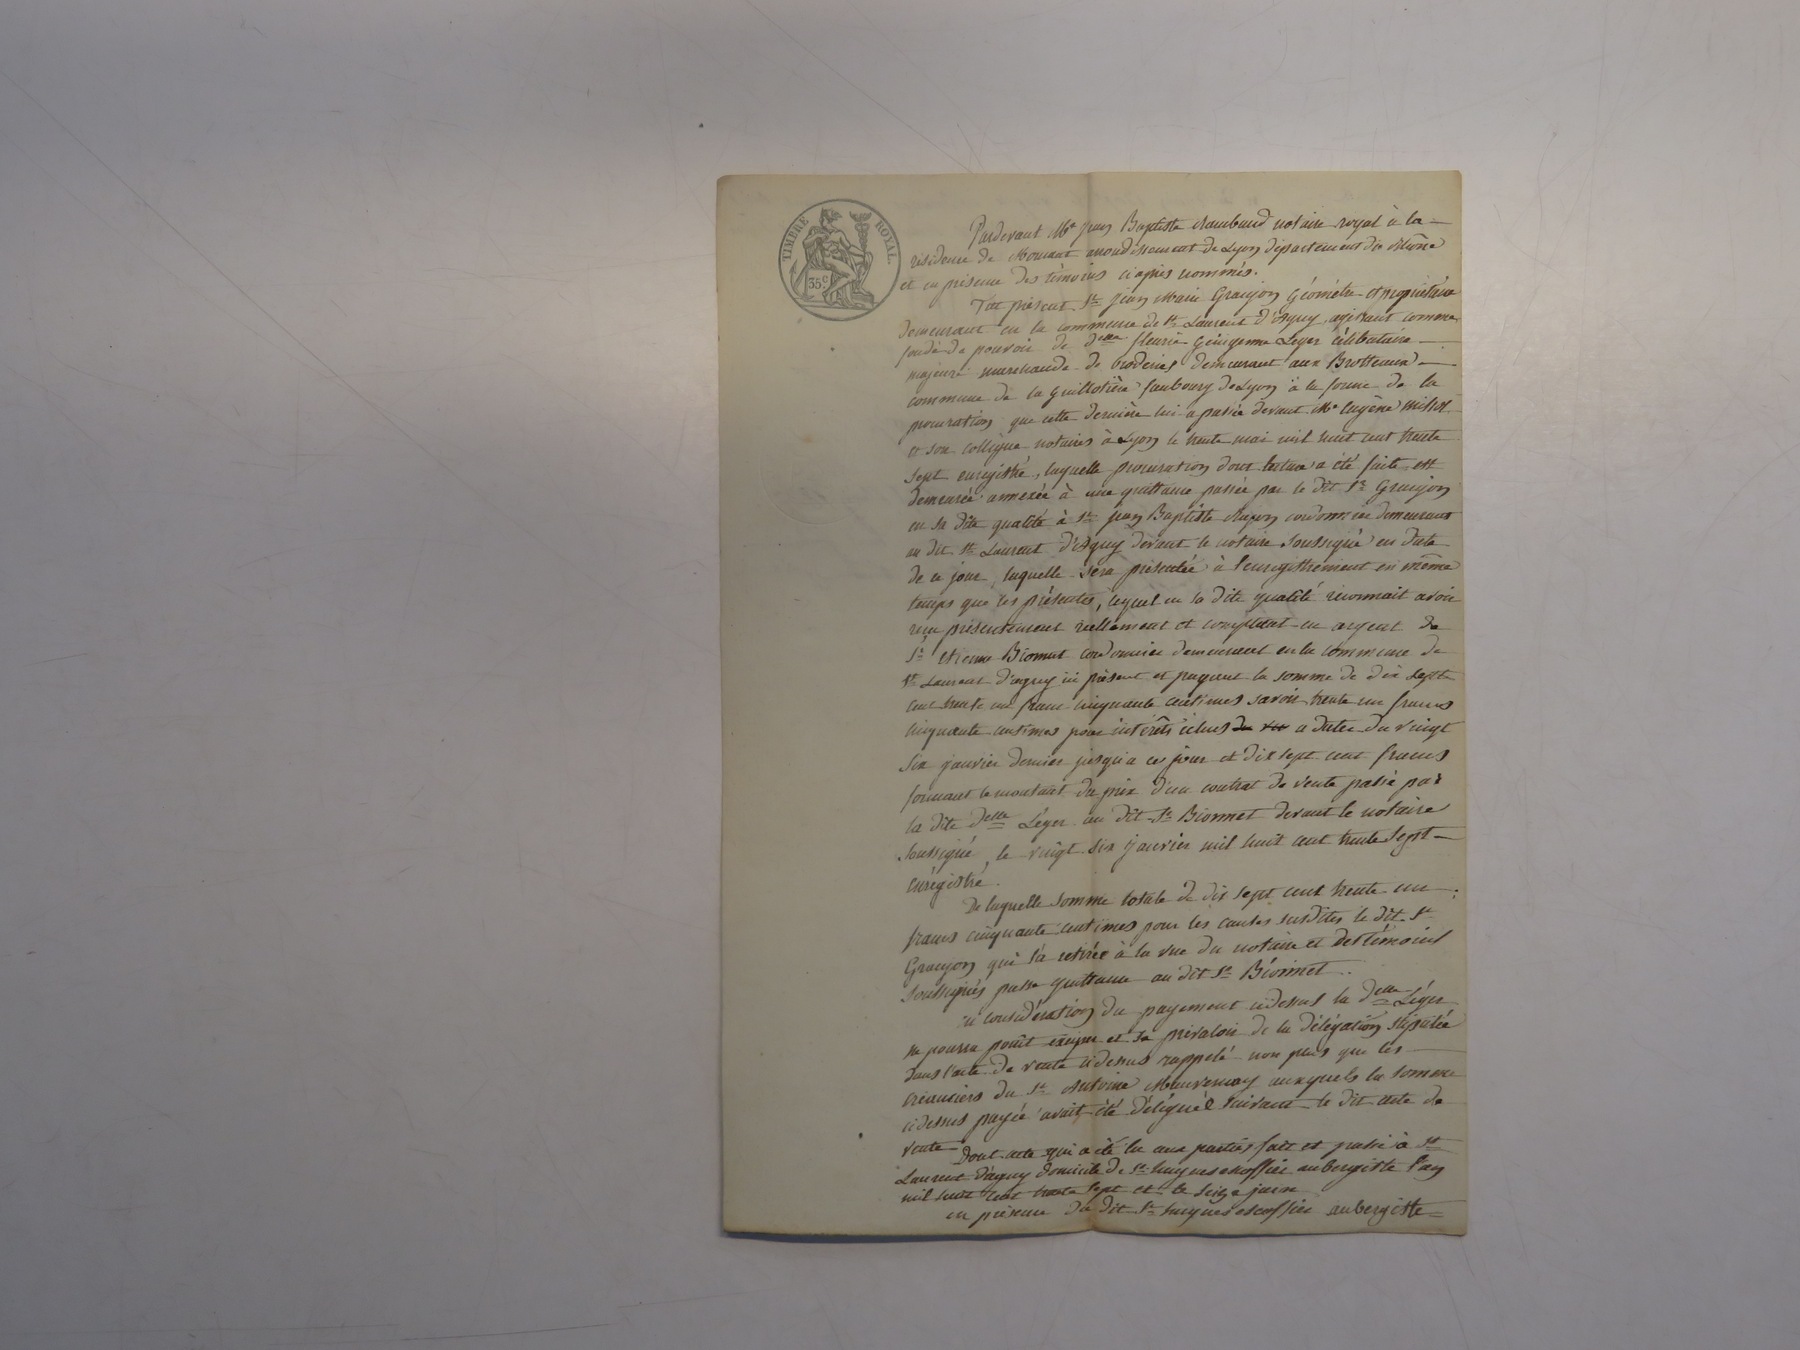 TIMBRE ROYAL.
35 c
Pardevant Me Jean Baptiste Raimbaud notaire royal à la
résidence de Mornant arrondissement de Lyon département du Rhône
et en présence des témoins ci après nommés.
Fut présent Sr Jean Marie Granjon Géomètre et propriétaire
demeurant en la commune de St Laurent d'Agny, agissant comme
fondé de pouvoir de Delle fleurie Léger célibataire
majeure marchande de broderies demeurant aux Brotteaux
commune de la Guillotière faubourg de Lyon à la forme de la
procuration que cette dernière lui a passée devant Me Eugène
et son collègue notaires à Lyon le trente mai mil huit cent trente
sept enregistré, laquelle procuration dont lecture a été faite est
demeurée annexée à une quittance passée par le dit Sr Granjon
en sa dite qualité à Sr Jean Baptiste cordonnier demeurant
au dit St Laurent d'Agny devant le notaire soussigné en date
de ce jour, laquelle sera présentée à l'enregistrement en même
temps que les présentes, lequel en sa dite qualité reconnait avoir
reçu présentement réellement et comptant en argent de
Sr etienne Bionnet cordonnier demeurant en la commune de
St Laurent d'agny ici présent et payant la somme de dix sept
cent trente un franc cinquante centimes savoir trente un francs
cinquante centimes pour intérêts échus a dater du vingt
six janvier dernier jusqu'a ce jour et dix sept cent francs
formant le montant du prix d'un contrat de vente passé par
la dite Delle Léger au dit Sr Bionnet devant le notaire
soussigné, le vingt six janvier mil huit cent trente sept
enrégistré.
De laquelle somme totale de dix sept cent trente un
francs cinquante centimes pour les causes susdites le dit Sr
Granjon qui l'a retirée à la vue du notaire et des témoins
soussignés passe quittance au dit Sr Bionnet.
en considération du payement cidessus la Delle Léger
ne pourra point exiger et se prévaloir de la délégation stipulée
dans l'acte de vente cidessus rappelé non plus que les
créanciers du Sr Antoine Mauvernay auxquels la somme
cidessus payée avait été délégué suivant le dit acte de
vente
Dont acte qui a été lu aux parties fait et passé à St
Laurent d'agny domicile de Sr hugues escoffier aubergiste l'an
mil huit cent trente sept et le seize juin
en présence du dit Sr hugues escoffier aubergiste